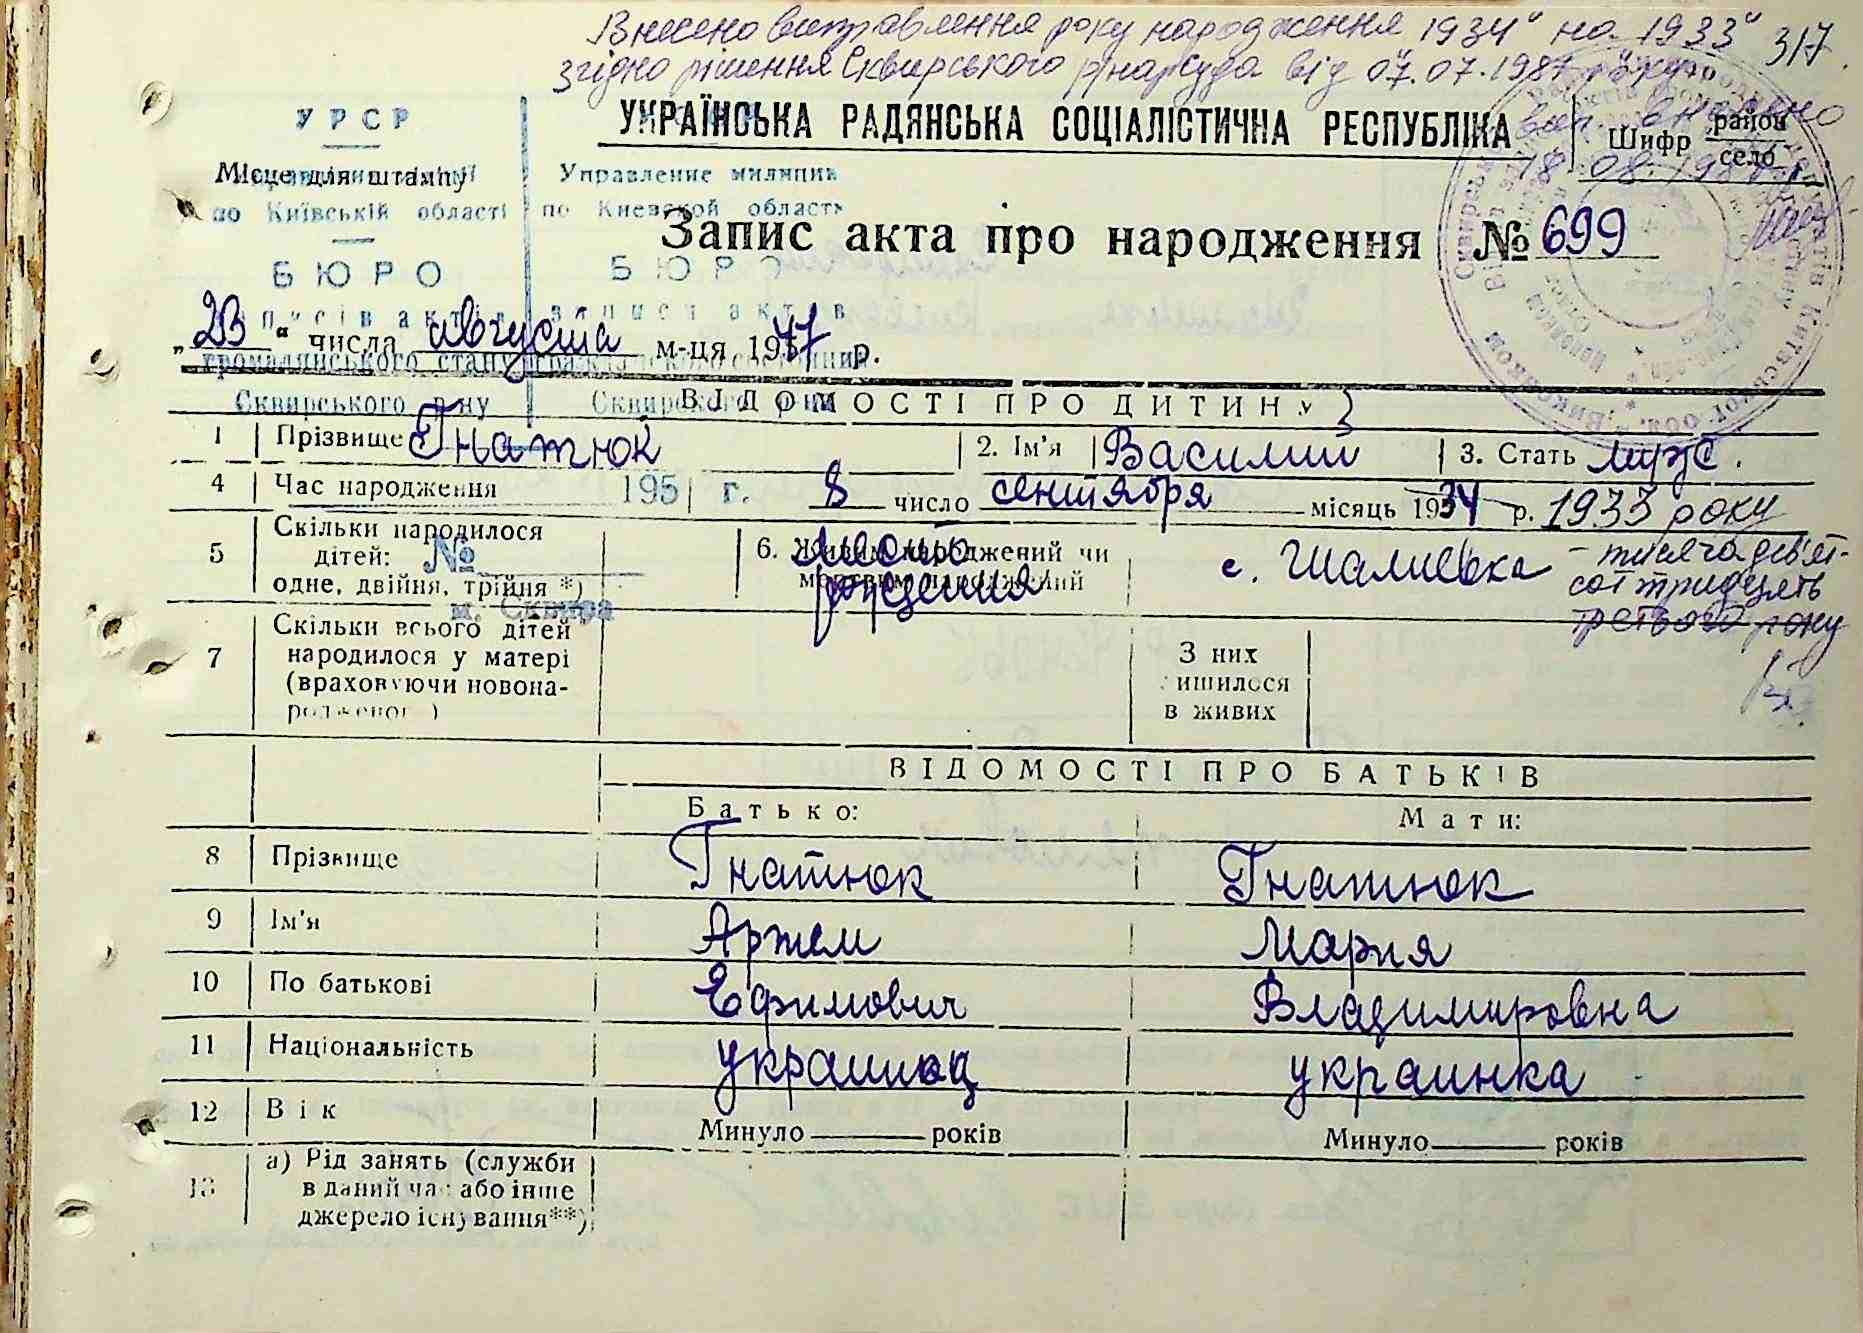 Внесено виправлення року народження 1934" на 1933" 317.
згідно рішення Сквирського нарсуда від 07.07.1987 року
УРСР
УКРАЇНСЬКА РАДЯНСЬКА СОЦІАЛІСТИЧНА РЕСПУБЛІКА
Шифр район
село
Місце для штампу
Управление милиции
по Київській області по Киевской области
18.08.1987
Запис акта про народження № 699
БЮРО БЮРО
записів актів записи актов
„23" числа августа м-ця 1957 р.
громадянського стану гражданского состояния
Сквирського р-ну Сквирского р-на
ВІДОМОСТІ ПРО ДИТИНУ
1 Прізвище Гнатюк 2. Ім'я Василий 3. Стать муж.
4 Час народження 195 г. 8 число сентября місяць 1934 р. 1933 року
5 Скільки народилося дітей: одне, двійня, трійня *) № 6. Живим народжений чи мертвим народжений
м. Сквира
Место рождения с. Шалиевка
– тисяча дев'ят-
сот тридцять
третього року
7 Скільки всього дітей народилося у матері (враховуючи новона-
родженого)
З них
лишилося
в живих
ВІДОМОСТІ ПРО БАТЬКІВ
Батько: Мати:
8 Прізвище Гнатюк Гнатюк
9 Ім'я Артем Мария
10 По батькові Ефимович Владимировна
11 Національність украинец украинка
12 Вік Минуло років Минуло років
13 а) Рід занять (служби
в даний час або інше
джерело існування**)